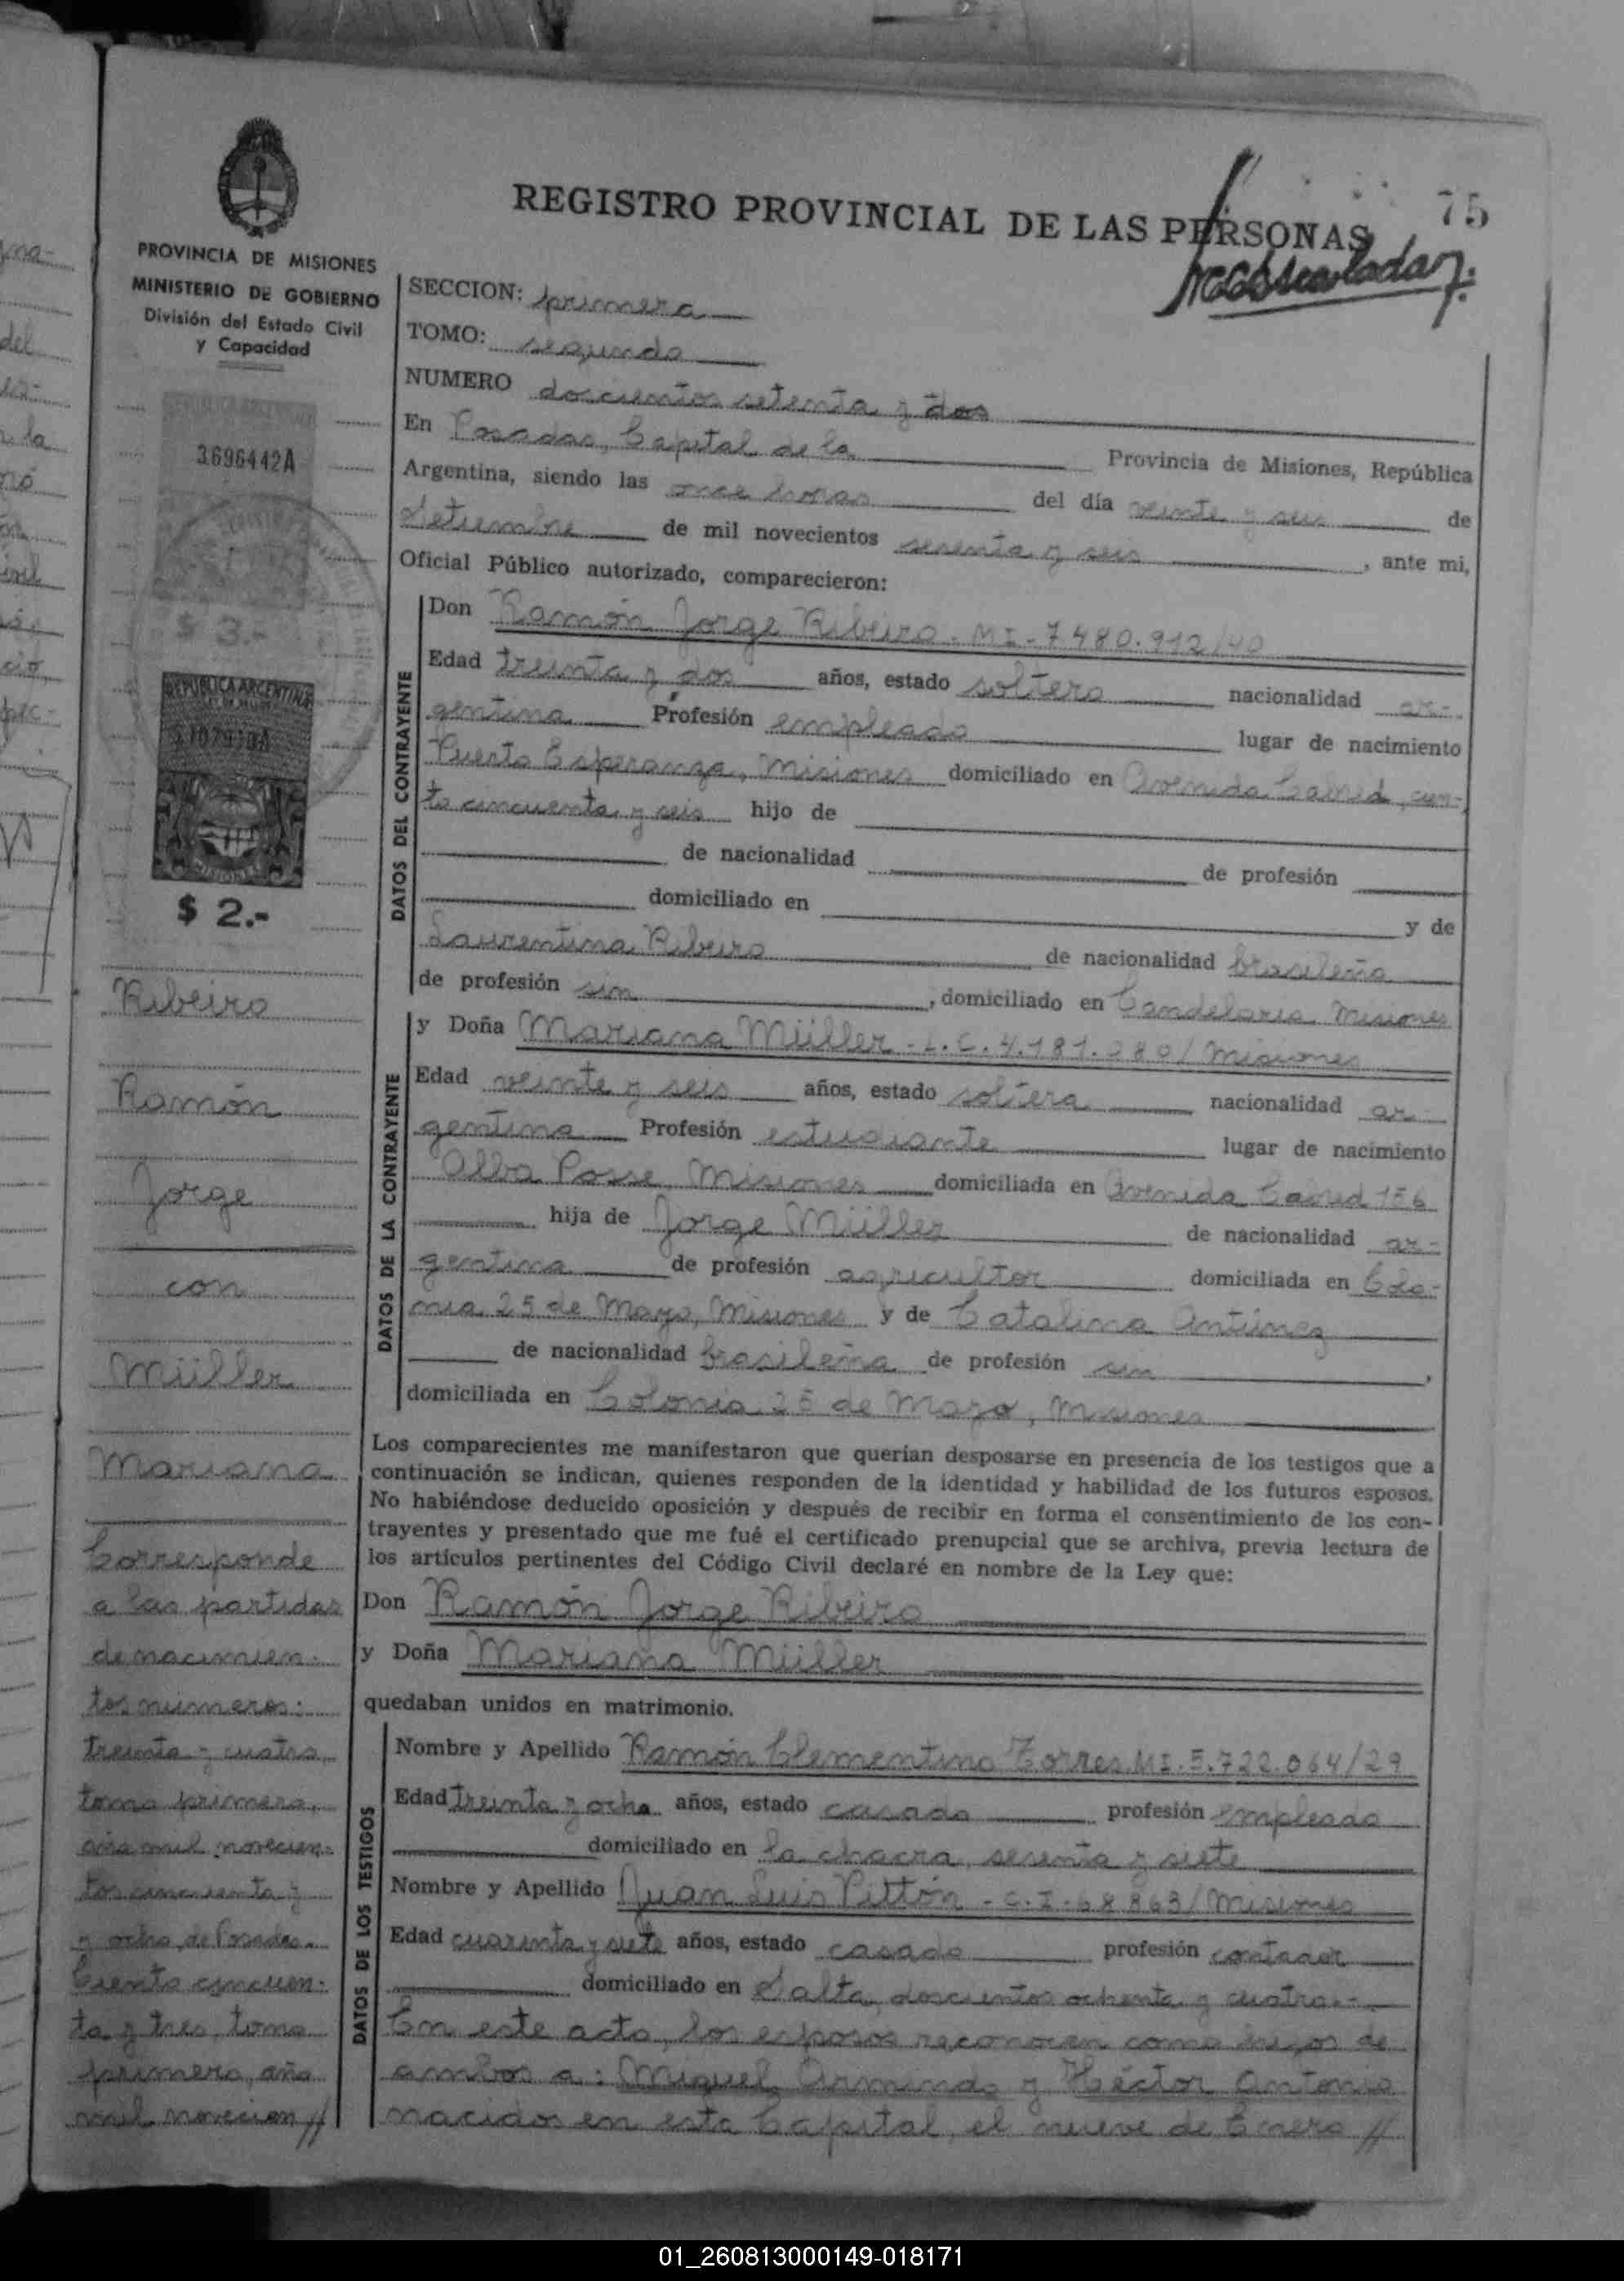 75
REGISTRO PROVINCIAL DE LAS PERSONAS
PROVINCIA DE MISIONES
MINISTERIO DE GOBIERNO
División del Estado Civil
y Capacidad
3696442A
$ 3.-
REPUBLICA ARGENTINA
MISIONES
$ 2.-
Ribeiro
Ramón
Jorge
con
Müller
Mariana
Corresponde
a las partidas
de nacimien-
tos números:
treinta y cuatro,
tomo primero,
año mil novecien-
tos cincuenta y
y ocho, de Posadas.
Ciento cincuen-
ta y tres, tomo
primero, año
mil novecien //
SECCION: primera
TOMO: segundo
NUMERO doscientos setenta y dos
En Posadas, Capital de la Provincia de Misiones, República
Argentina, siendo las once horas del día veinte y seis de
Setiembre de mil novecientos sesenta y seis, ante mi,
Oficial Público autorizado, comparecieron:
DATOS DEL CONTRAYENTE
Don Ramón Jorge Ribeiro - MI - 7.480.912/40
Edad treinta y dos años, estado soltero nacionalidad ar-
gentina Profesión empleado lugar de nacimiento
Puerto Esperanza, Misiones domiciliado en Avenida Cabred, cien-
to cincuenta y seis hijo de
de nacionalidad de profesión
domiciliado en y de
Laurentina Ribeiro de nacionalidad brasileña
de profesión sin, domiciliado en Candelaria Misiones
DATOS DE LA CONTRAYENTE
y Doña Mariana Müller - L.C. 4.181.080/Misiones
Edad veinte y seis años, estado soltera nacionalidad ar-
gentina Profesión estudiante lugar de nacimiento
Alba Posse, Misiones domiciliada en Avenida Cabred 156
hija de Jorge Müller de nacionalidad ar-
gentina de profesión agricultor domiciliada en Colo-
nia 25 de Mayo, Misiones y de Catalina Antúnez
de nacionalidad brasileña de profesión sin,
domiciliada en Colonia 25 de Mayo, Misiones
Los comparecientes me manifestaron que querían desposarse en presencia de los testigos que a
continuación se indican, quienes responden de la identidad y habilidad de los futuros esposos.
No habiéndose deducido oposición y después de recibir en forma el consentimiento de los con-
trayentes y presentado que me fué el certificado prenupcial que se archiva, previa lectura de
los artículos pertinentes del Código Civil declaré en nombre de la Ley que:
Don Ramón Jorge Ribeiro
y Doña Mariana Müller
quedaban unidos en matrimonio.
DATOS DE LOS TESTIGOS
Nombre y Apellido Ramón Clementino Torres MI. 5.722.064/29
Edad treinta y ocho años, estado casado profesión empleado
domiciliado en la chacra, sesenta y siete
Nombre y Apellido Juan Luis Pittón - C.I - 68863/Misiones
Edad cuarenta y siete años, estado casado profesión contador
domiciliado en Salta, doscientos ochenta y cuatro.-
En este acto, los esposos reconocen como hijos de
ambos a: Miguel Armindo y Héctor Antonio
nacidos en esta Capital, el nueve de Enero //
01_260813000149-018171